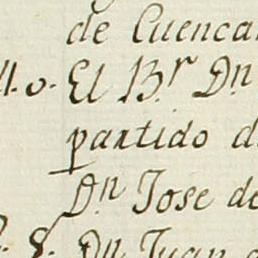 de Cuenca
El B.r D.n
partido d
D.n Jose de
8. D.n Juan